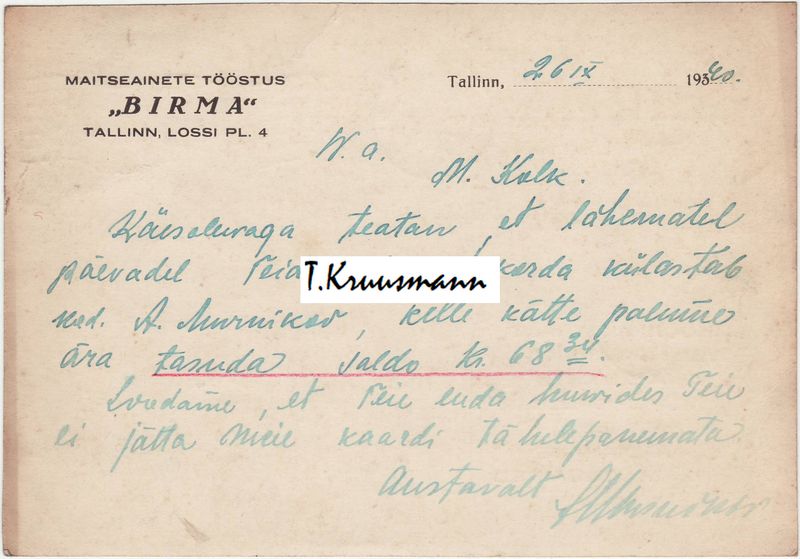 MAITSEAINETE TÖÖSTUS
„BIRMA“
TALLINN, LOSSI PL. 4
Tallinn, 26 IX 19340.
W. a.
M. Kolk.
Käesolevaga teatan, et lähematel
päevadel Teid korda külastab
T.Kruusmann
A. Murnikov, kelle kätte palume
ära tasuda saldo Kr. 68 34.
Loodame, et Teie enda huvides Teie
ei jätta meie kaardi tähelepanemata
Austavalt